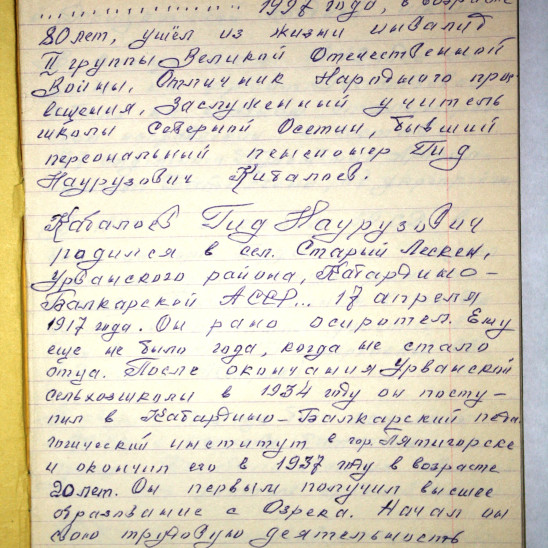 ................ 1997 года, в возрасте
80 лет, ушёл из жизни инвалид
II группы Великой Отечественной
Войны, Отличник Народного про-
вещения, Заслуженный учитель
школы Северной Осетии, бывший
персональный пенсионер Гид
Наурузович Кабалоев.
Кабалоев Гид Наурузович
родился в сел. Старый Лескен,
Урванского района, Кабардино-
Балкарской АССР... 17 апреля
1917 года. Он рано осиротел. Ему
еще не было года, когда не стало
отца. После окончания Урванской
сельхозшколы в 1934 году он посту-
пил в Кабардино-Балкарский педа
гогический институт в гор. Пятигорске
и окончил его в 1937 году в возрасте
20 лет. Он первым получил высшее
образование с Озрека. Начал он
свою трудовую деятельность